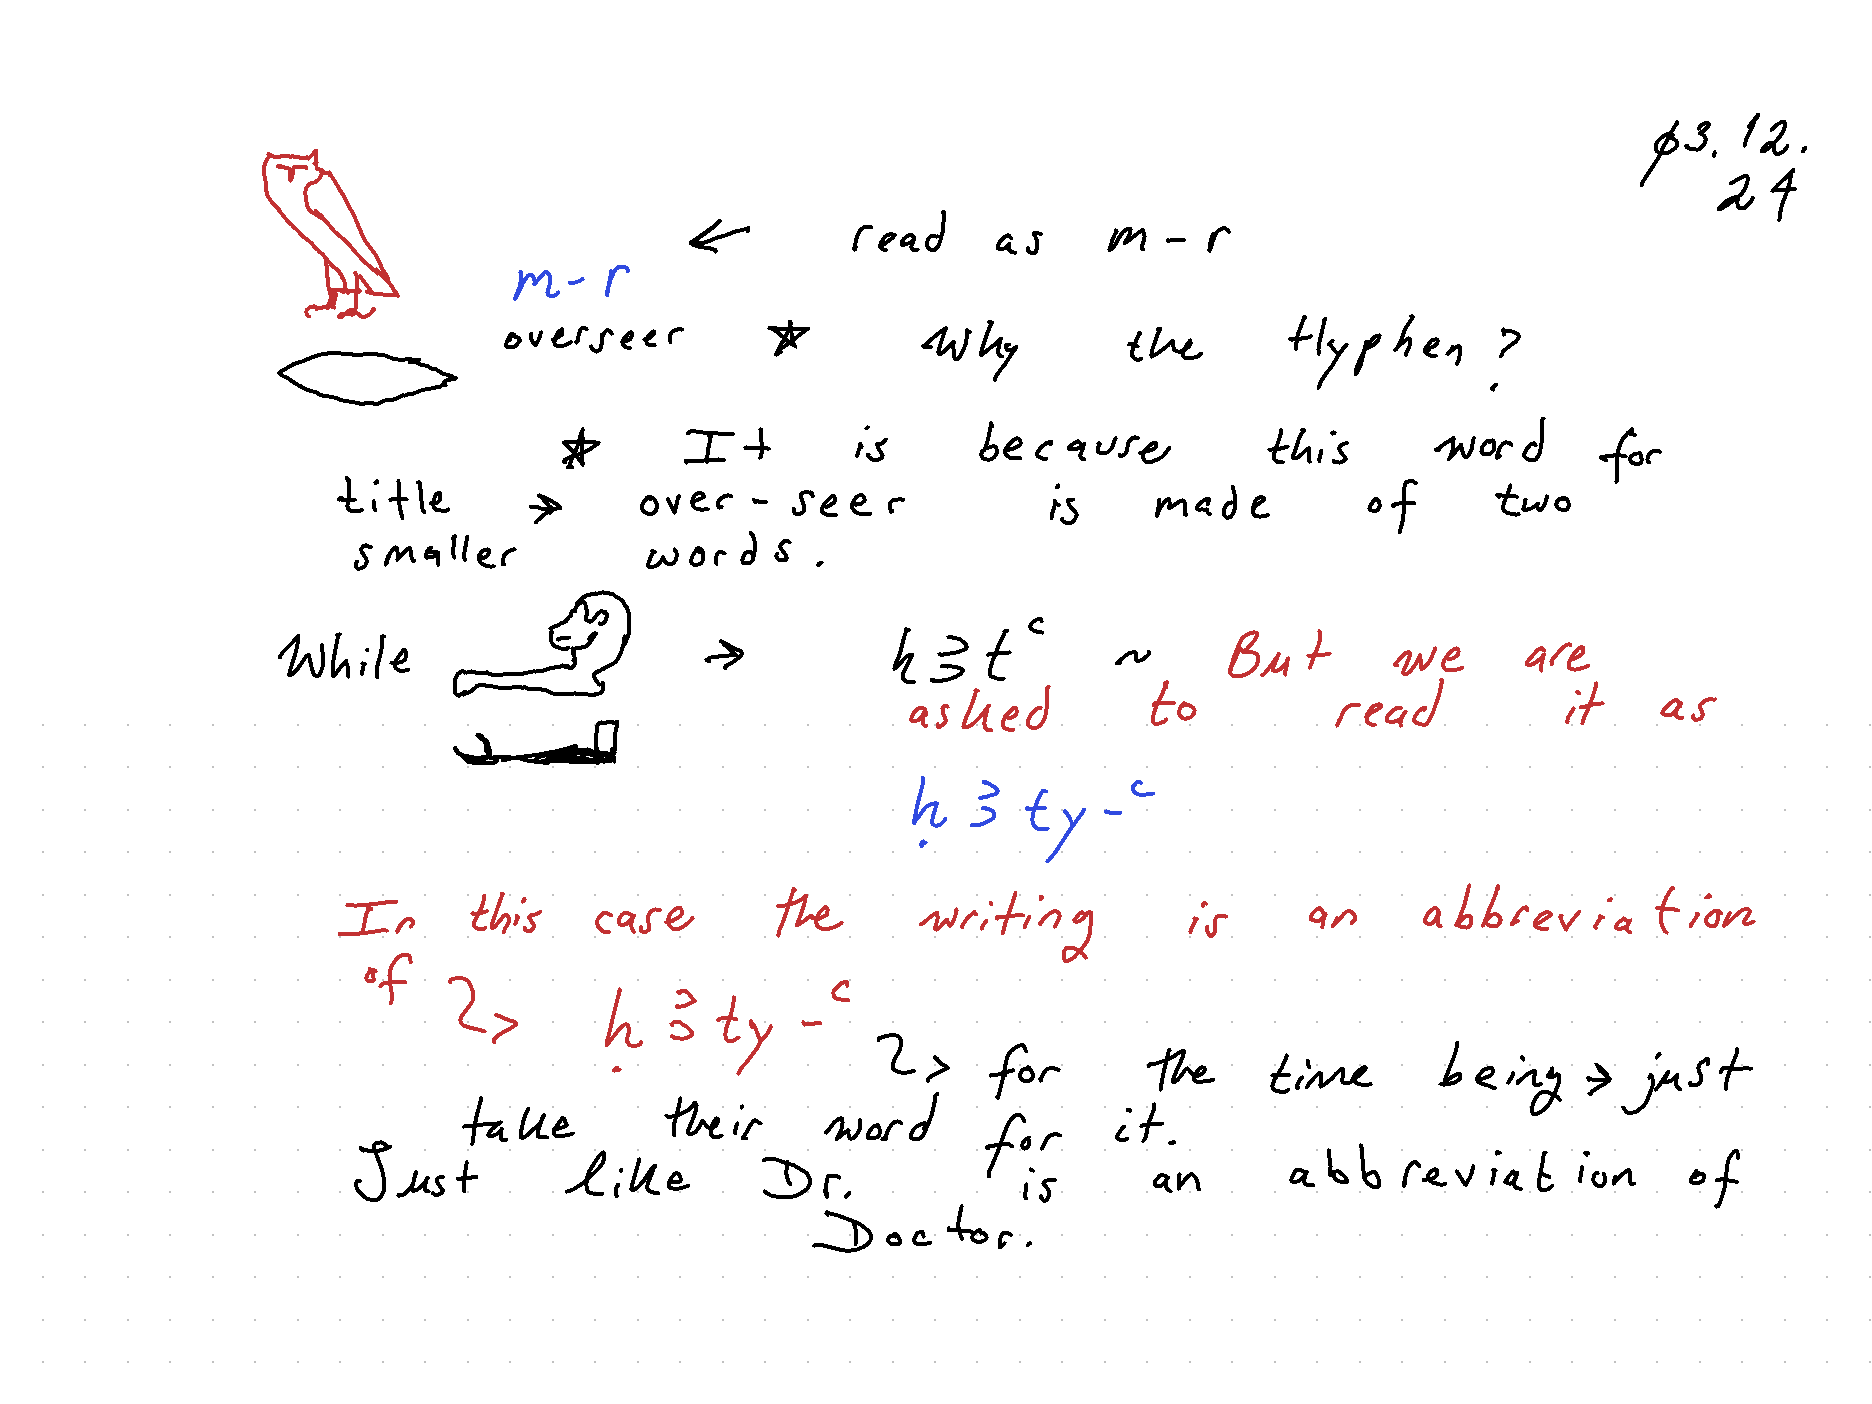 ø3.12.
24
← read as m-r
m-r
overseer ☆ Why the Hyphen?
☆ It is because this word for
title → over-seer is made of two
smaller words.
While → h3tᶜ ~ But we are
asked to read it as
ḥ3ty-ᶜ
In this case the writing is an abbreviation
of ↪ ḥ3ty-ᶜ
↪ for the time being → just
take their word for it.
Just like Dr. is an abbreviation of
Doctor.